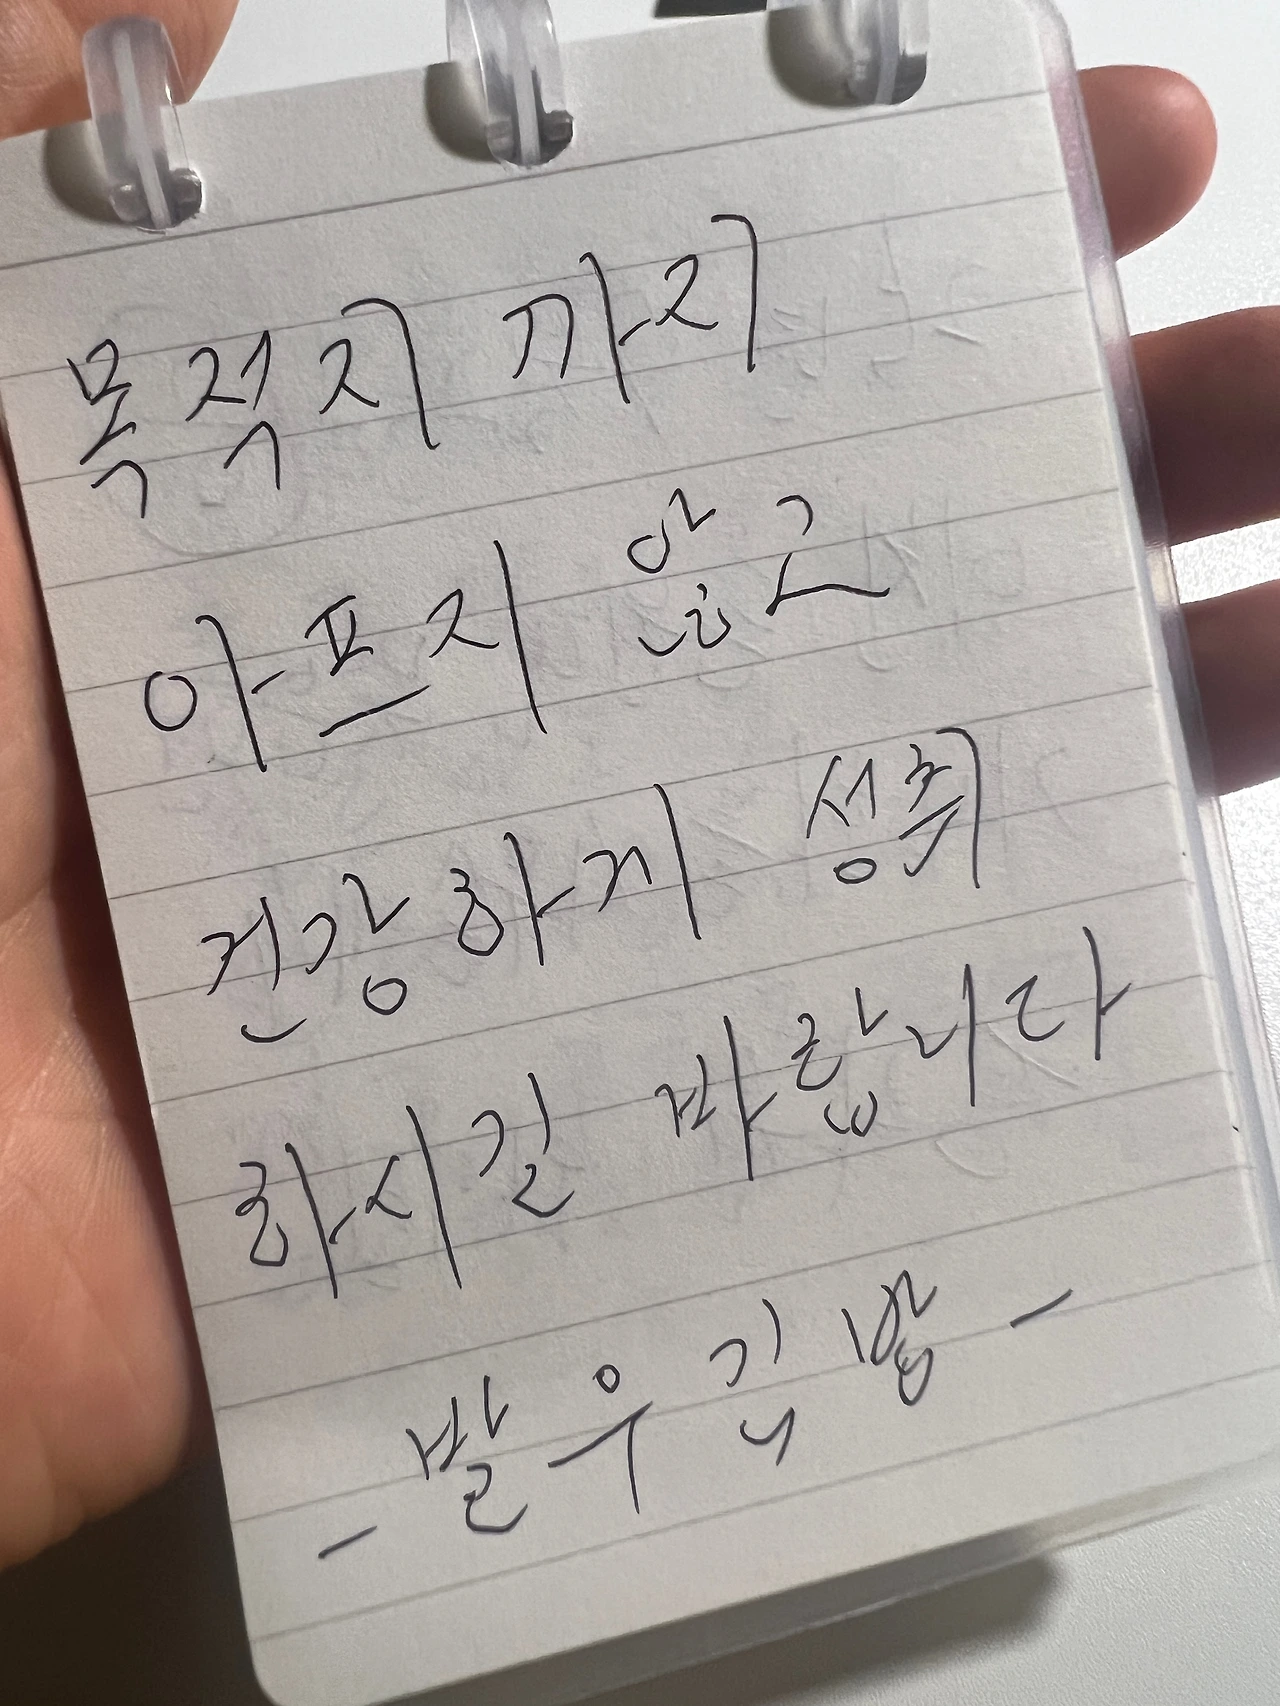 목적지 까지
아프지 않고
건강하게 성취
하시길 바랍니다
- 발우김밥 -